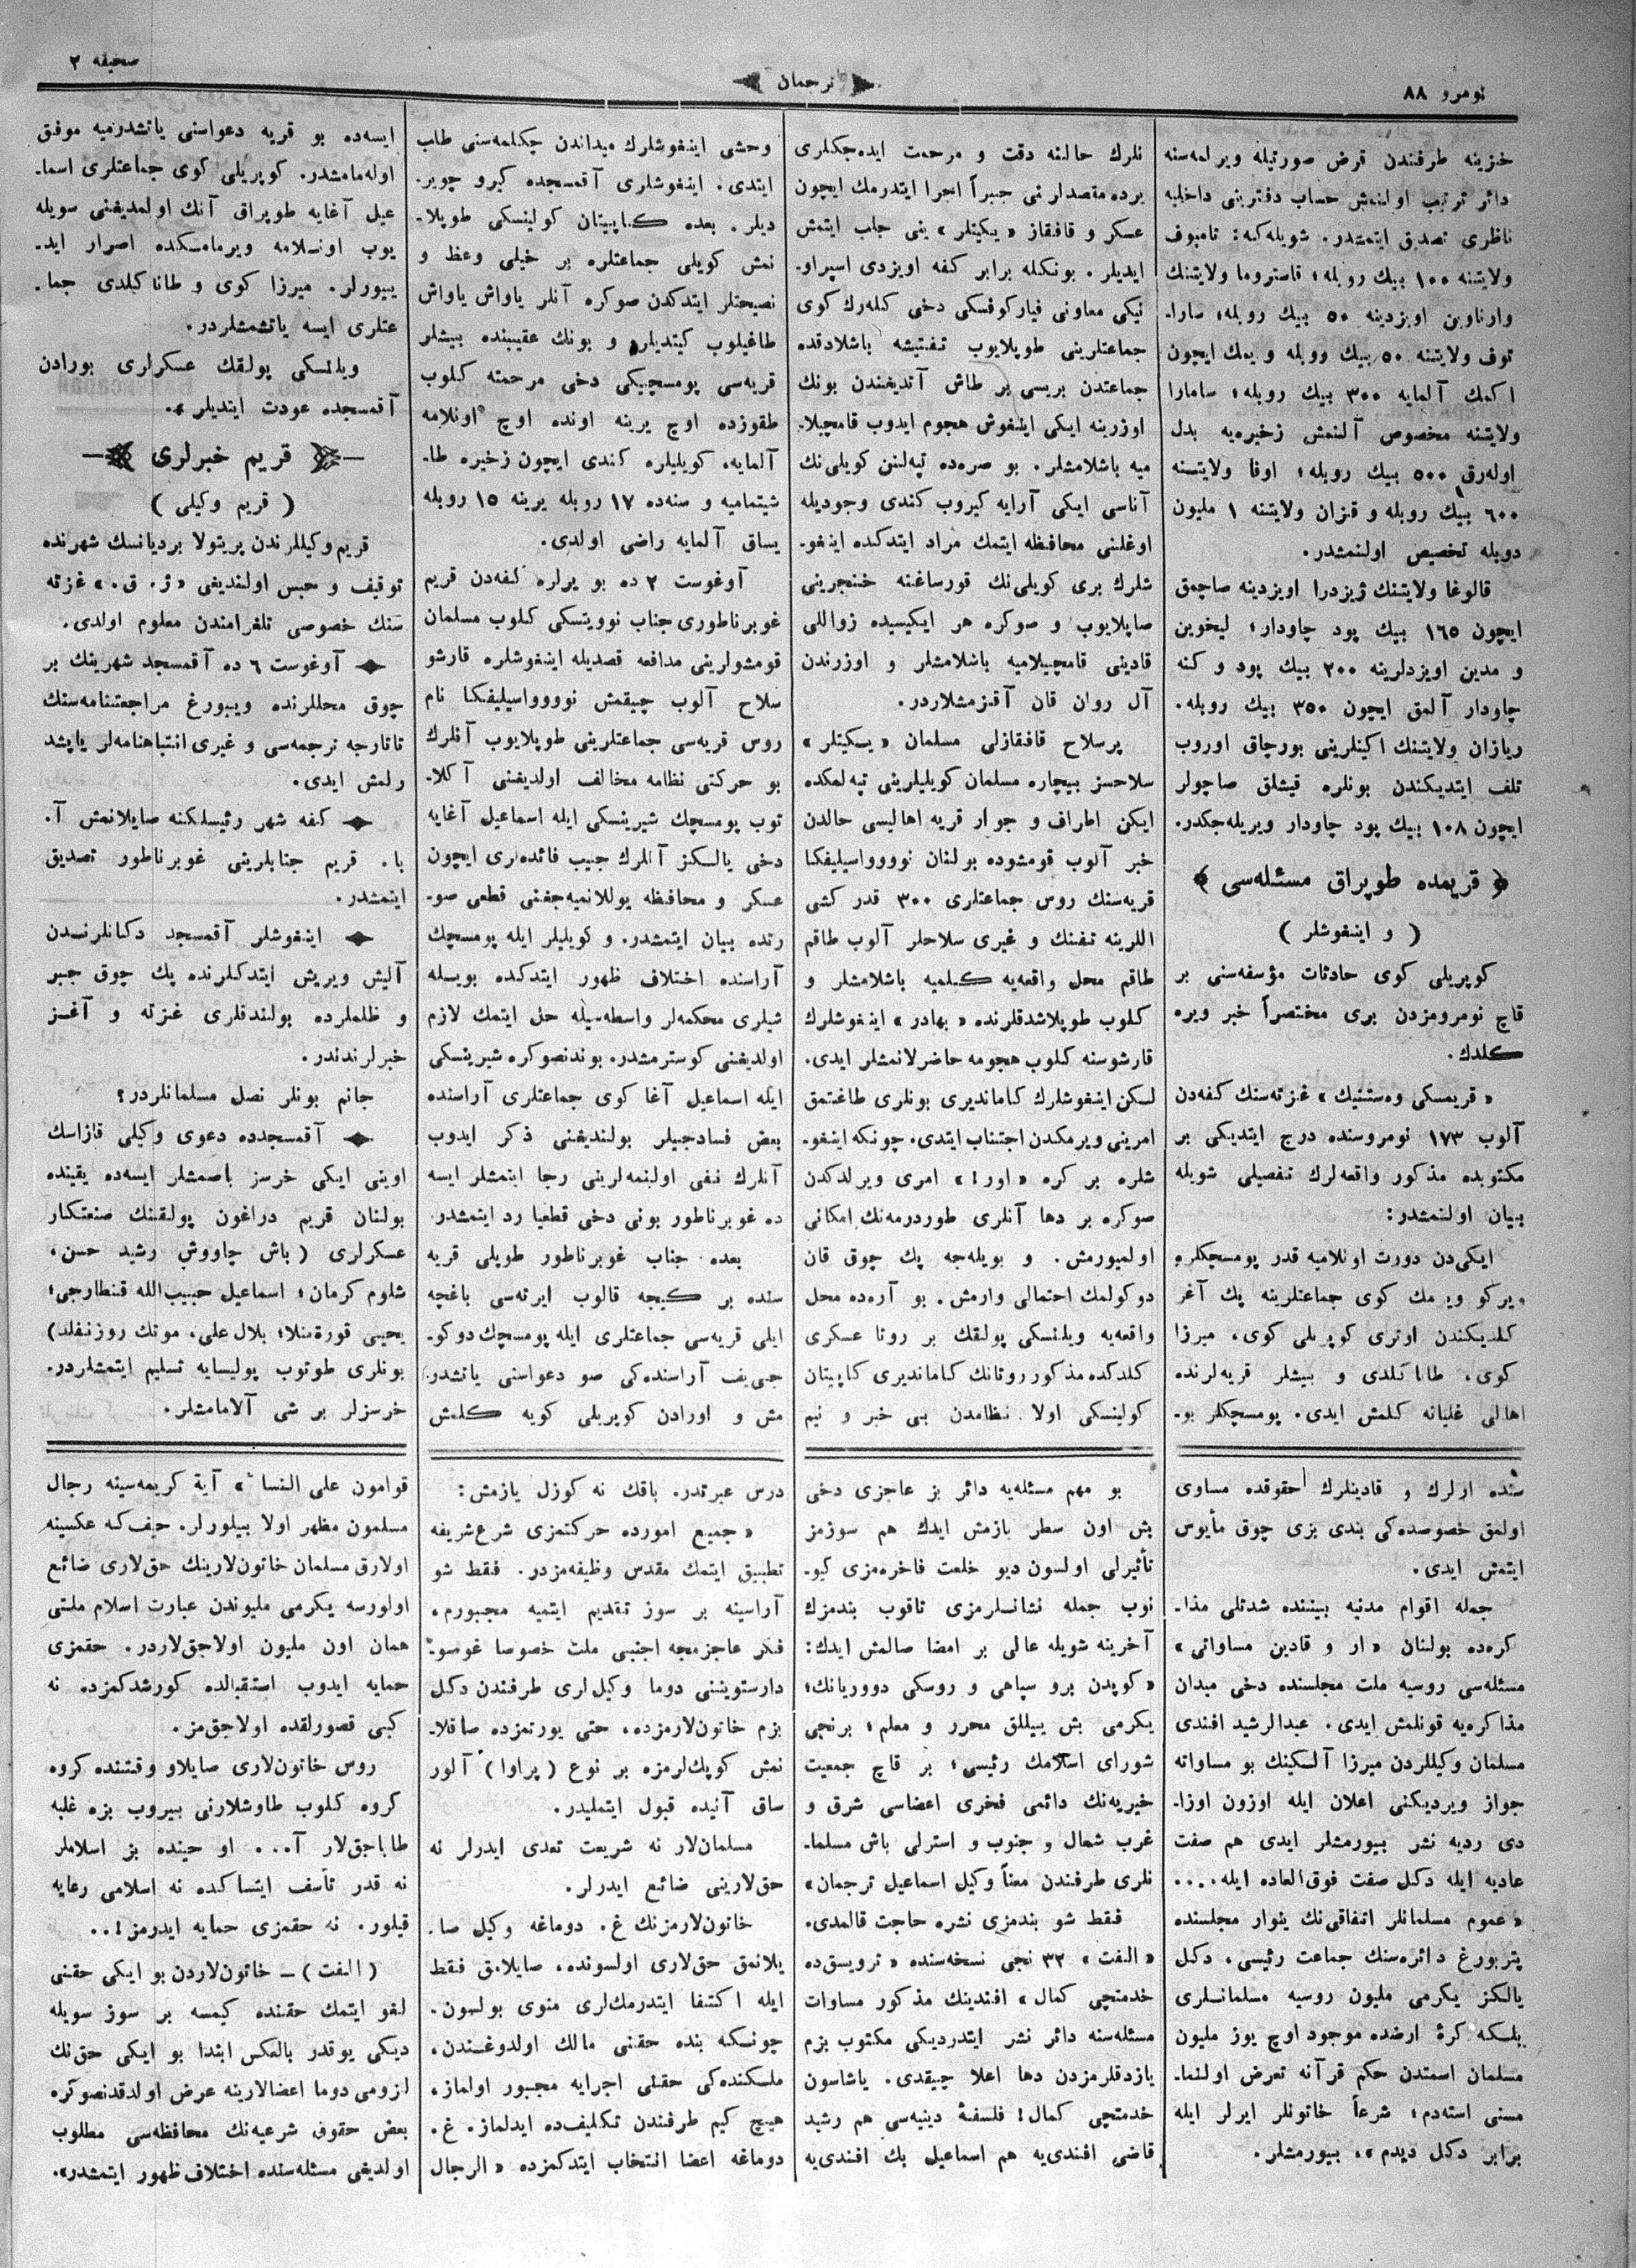 نومرو ٨٨
ترجمان
صحيفه ٢
خزينه طرفندن قرض صورتيله ويرلمه‌سنه
دائر ترتيب اولنمش حساب دفترينى داخليه
ناظرى تصديق ايتمشدر. شويله‌كه: تامبوف
ولايتنه ١٠٠ بيك روبله؛ قاستروما ولايتنك
وارناوين اويزدينه ٥٠ بيك روبله؛ سارا-
توف ولايتنه ٥٠ بيك روبله و يمك ايچون
اكمك آلمايه ٣٠٠ بيك روبله؛ سامارا
ولايتنه مخصوص آلنمش زخيره‌يه بدل
اوله‌رق ٥٠٠ بيك روبله؛ اوفا ولايتنه
٦٠٠ بيك روبله و قزان ولايتنه ١ مليون
روبله تخصيص اولنمشدر.
قالوغا ولايتنك ژيزدرا اويزدينه صاچمق
ايچون ١٦٥ بيك پود چاودار؛ ليخوين
و مدين اويزدلرينه ٢٠٠ بيك پود و كنه
چاودار آلمق ايچون ٣٥٠ بيك روبله.
ريازان ولايتنك اكينلرينى بورچاق اوروب
تلف ايتديكندن بونلره قيشلق صاچولر
ايچون ١٠٨ بيك پود چاودار ويريله‌جكدر.
﴿ قريمده طوپراق مسئله‌سى ﴾
( و اينغوشلر )
كوپريلى كوى حادثات مؤسفه‌سنى بر
قاچ نومرومزدن برى مختصراً خبر ويره
كلدك.
« قريمسكى وه‌ستنيك » غزته‌سنك كفه‌دن
آلوب ١٧٣ نومروسنده درج ايتديكى بر
مكتوبده مذكور واقعه‌لرك تفصيلى شويله
بيان اولنمشدر:
ايكى‌دن دورت اونلاميه قدر پومسچكلره
ويركو ويرمك كوى جماعتلرينه پك آغر
كلديكندن اوترى كوپريلى كوى، ميرزا
كوى، طاناكلدى و بيشلر قريه‌لرنده
اهالى غليانه كلمش ايدى. پومسچكلر بو-
نلرك حالنه دقت و مرحمت ايده‌جكلرى
يرده مقصدلرنى جبراً اجرا ايتدرمك ايچون
عسكر و قافقاز « يكيتلر » ينى جلب ايتمش
ايديلر. بونكله برابر كفه اويزدى اسپراو-
نيكى معاونى فياركوفسكى دخى كله‌رك كوى
جماعتلرينى طوپلايوب تفتيشه باشلادقده
جماعتدن بريسى بر طاش آتديغندن بونك
اوزرينه ايكى اينغوش هجوم ايدوب قامچيلا-
ميه باشلامشلر. بو صره‌ده تپه‌لنن كويلى‌نك
آناسى ايكى آرايه كيروب كندى وجوديله
اوغلنى محافظه ايتمك مراد ايتدكده اينغو-
شلرك برى كويلى‌نك قورساغنه خنجرينى
صاپلايوب و صوكره هر ايكيسيده زواللى
قادينى قامچيلاميه باشلامشلر و اوزرندن
آل روان قان آقزمشلاردر.
پرسلاح قافقازلى مسلمان « يكيتلر »
سلاحسز بيچاره مسلمان كويليلرينى تپه‌لمكده
ايكن اطراف و جوار قريه اهاليسى حالدن
خبر آلوب قومشوده بولنان نوووواسيليفكا
قريه‌سنك روس جماعتلرى ٣٠٠ قدر كشى
اللرينه تفنك و غيرى سلاحلر آلوب طاقم
طاقم محل واقعه‌يه كلميه باشلامشلر و
كلوب طوپلاشدقلرنده « بهادر » اينغوشلرك
قارشوسنه كلوب هجومه حاضرلانمشلر ايدى.
لكن اينغوشلرك كامانديرى بونلرى طاغتمق
امرينى ويرمكدن اجتناب ايتدى. چونكه اينغو-
شلره بر كره « اور! » امرى ويرلدكدن
صوكره بر دها آنلرى طوردرمه‌نك امكانى
اولميورمش. و بويله‌جه پك چوق قان
دوكولمك احتمالى وارمش. بو آره‌ده محل
واقعه‌يه ويلنسكى پولقك بر روتا عسكرى
كلدكده مذكور روتانك كامانديرى كاپيتان
كولينسكى اولا نظامدن بى خبر و نيم
وحشى اينغوشلرك ميداندن چكلمه‌سنى طلب
ايتدى. اينغوشلرى آقمسجده كيرو چوير-
ديلر. بعده كاپيتان كولينسكى طوپلا-
نمش كويلى جماعتلره بر خيلى وعظ و
نصيحتلر ايتدكدن صوكره آنلر ياواش ياواش
طاغيلوب كيتديلر، و بونك عقيبنده بيشلر
قريه‌سى پومسچيكى دخى مرحمته كلوب
طقوزده اوچ يرينه اونده اوچ اونلامه
آلمايه، كويليلره كندى ايچون زخيره طا-
شيتماميه و سنه‌ده ١٧ روبله يرينه ١٥ روبله
يساق آلمايه راضى اولدى.
آوغوست ٢ ده بو يرلره كفه‌دن قريم
غوبرناطورى جناب نوويتسكى كلوب مسلمان
قومشولرينى مدافعه قصديله اينغوشلره قارشو
سلاح آلوب چيقمش نوووواسيليفكا نام
روس قريه‌سى جماعتلرينى طوپلايوب آنلرك
بو حركتى نظامه مخالف اولديغنى آكلا-
توب پومسچك شيرينسكى ايله اسماعيل آغايه
دخى يالكز آنلرك جيب فائده‌لرى ايچون
عسكر و محافظه يوللانميه‌جغنى قطعى صو-
رتده بيان ايتمشدر. و كويليلر ايله پومسچك
آراسنده اختلاف ظهور ايتدكده بويله
شيلرى محكمه‌لر واسطه‌سيله حل ايتمك لازم
اولديغنى كوسترمشدر. بوندنصوكره شيرينسكى
ايله اسماعيل آغا كوى جماعتلرى آراسنده
بعض فسادجيلر بولنديغنى ذكر ايدوب
آنلرك نفى اولنمه‌لرينى رجا ايتمشلر ايسه
ده غوبرناطور بونى دخى قطعيا رد ايتمشدر.
بعده جناب غوبرناطور طوپلى قريه
سنده بر كيجه قالوب ايرته‌سى باغچه
ايلى قريه‌سى جماعتلرى ايله پومسچك دوكو-
جييف آراسنده‌كى صو دعواسنى ياتشدر-
مش و اورادن كوپريلى كويه كلمش
ايسه‌ده بو قريه دعواسنى ياتشدرميه موفق
اوله‌مامشدر. كوپريلى كوى جماعتلرى اسما-
عيل آغايه طوپراق آنك اولمديغنى سويله
يوب اونلامه ويرمامكده اصرار ايد-
ييورلر. ميرزا كوى و طاناكلدى جما-
عتلرى ايسه ياتشمشلردر.
ويلنسكى پولقك عسكرلرى بورادن
آقمسجده عودت ايتديلر ».
قريم خبرلرى
( قريم وكيلى )
قريم وكيللرندن پريتولا برديانسك شهرنده
توقيف و حبس اولنديغى « ژ. ق. » غزته
سنك خصوصى تلغرامندن معلوم اولدى.
آوغوست ٦ ده آقمسجد شهرينك بر
چوق محللرنده ويبورغ مراجعتنامه‌سنك
تاتارجه ترجمه‌سى و غيرى انتباهنامه‌لر ياپشد
رلمش ايدى.
كفه شهر رئيسلكنه صايلانمش آ.
با. قريم جنابلرينى غوبرناطور تصديق
ايتمشدر.
اينغوشلر آقمسجد دكانلرندن
آليش ويريش ايتدكلرنده پك چوق جبر
و ظلملرده بولندقلرى غزته و آغز
خبرلرندندر.
جانم بونلر نصل مسلمانلردر؟
آقمسجدده دعوى وكيلى قازاسك
اوينى ايكى خرسز باصمشلر ايسه‌ده يقينده
بولنان قريم دراغون پولقنك صنعتكار
عسكرلرى ( باش چاووش رشيد حسن،
شلوم كرمان؛ اسماعيل حبيب‌الله قنطارجى؛
يحيى قورةمنلا؛ بلال على، موتك روزنفلد)
بونلرى طوتوب پوليسايه تسليم ايتمشلردر.
خرسزلر بر شى آلامامشلر.
سنده ارلرك و قادينلرك حقوقده مساوى
اولمق خصوصده‌كى بندى بزى چوق مأيوس
ايتمش ايدى.
جمله اقوام مدنيه بيننده شدتلى مذا-
كره‌ده بولنان « ار و قادين مساواتى »
مسئله‌سى روسيه ملت مجلسنده دخى ميدان
مذاكره‌يه قونلمش ايدى. عبدالرشيد افندى
مسلمان وكيللردن ميرزا آلكينك بو مساواته
جواز ويرديكنى اعلان ايله اوزون اوزا-
دى رديه نشر بيورمشلر ايدى هم صفت
عاديه ايله دكل صفت فوق‌العاده ايله....
« عموم مسلمانلر اتفاقى‌نك ينوار مجلسنده
پتربورغ دائره‌سنك جماعت رئيسى، دكل
يالكز يكرمى مليون روسيه مسلمانلرى
بلكه كرۀ ارضده موجود اوچ يوز مليون
مسلمان اسمندن حكم قرآنه تعرض اولنما-
مسنى استه‌دم؛ شرعاً خاتونلر ايرلر ايله
برابر دكل ديدم »، بيورمشلر.
بو مهم مسئله‌يه دائر بز عاجزى دخى
بش اون سطر يازمش ايدك هم سوزمز
تأثيرلى اولسون ديو خلعت فاخره‌مزى كيو-
نوب جمله نشانلرمزى تاقوب بندمزك
آخرينه شويله عالى بر امضا صالمش ايدك:
« كوپدن برو سپاهى و روسكى دووريانك؛
يكرمى بش ييللق محرر و معلم؛ برنجى
شوراى اسلامك رئيسى؛ بر قاچ جمعيت
خيريه‌نك دائمى فخرى اعضاسى شرق و
غرب شمال و جنوب و استرلى باش مسلما-
نلرى طرفندن معناً وكيل اسماعيل ترجمان »
فقط شو بندمزى نشره حاجت قالمدى.
« الفت » ٣٢ نجى نسخه‌سنده « ترويسق‌ده
خدمتچى كمال » افندينك مذكور مساوات
مسئله‌سنه دائر نشر ايتدرديكى مكتوب بزم
يازدقلرمزدن دها اعلا چيقدى. ياشاسون
خدمتچى كمال! فلسفۀ دينيه‌سى هم رشيد
قاضى افندى‌يه هم اسماعيل بك افندى‌يه
درس عبرتدر. باقك نه كوزل يازمش:
« جميع امورده حركتمزى شرع شريفه
تطبيق ايتمك مقدس وظيفه‌مزدر. فقط شو
آراسينه بر سوز تقديم ايتميه مجبورم.
فكر عاجزمجه اجنبى ملت خصوصا غوسو-
دارستويننى دوما وكيل‌لرى طرفندن دكل
بزم خاتون‌لارمزده، حتى يورتمزده صاقلا-
نمش كوپك‌لرمزه بر نوع ( پراوا ) آلور
ساق آنيده قبول ايتمليدر.
مسلمان‌لار نه شريعت تعدى ايدرلر نه
حق‌لارينى ضائع ايدرلر.
خاتون‌لارمزنك غ. دوماغه وكيل صا-
يلانمق حق‌لارى اولسونده، صايلانق فقط
ايله اكتفا ايتدرمك‌لرى منوى بولسون.
چونكه بنده حقنى مالك اولدوغندن،
ملكنده‌كى حقنى اجرايه مجبور اولماز.
هيچ كيم طرفندن تكليف‌ده ايدلماز. غ.
دوماغه اعضا انتخاب ايتدكمزده « الرجال
قوامون على النساء » آية كريمه‌سينه رجال
مسلمون مظهر اولا بيلورلر. حيف كه عكسينه
اولارق مسلمان خاتون‌لارينك حق‌لارى ضائع
اولورسه يكرمى مليوندن عبارت اسلام ملتى
همان اون مليون اولاجق‌لاردر. حقمزى
حمايه ايدوب استقبالده كورشدكمزده نه
كبى قصورلقده اولاجق‌مز.
روس خاتون‌لارى صايلاو وقتنده كروه
كروه كلوب طاوشلارنى بيروب بزه غلبه
طاباجق‌لار آ... او حينده بز اسلاملر
نه قدر تأسف ايتساكده نه اسلامى رعايه
قيلور. نه حقمزى حمايه ايدرمز!..
( الفت ) ـ خاتون‌لاردن بو ايكى حقنى
لغو ايتمك حقنده كيمسه بر سوز سويله
ديكى يوقدر بالعكس ابتدا بو ايكى حق‌نك
لزومى دوما اعضالارينه عرض اولدقدنصوكره
بعض حقوق شرعيه‌نك محافظه‌سى مطلوب
اولديغى مسئله‌سنده اختلاف ظهور ايتمشدر».